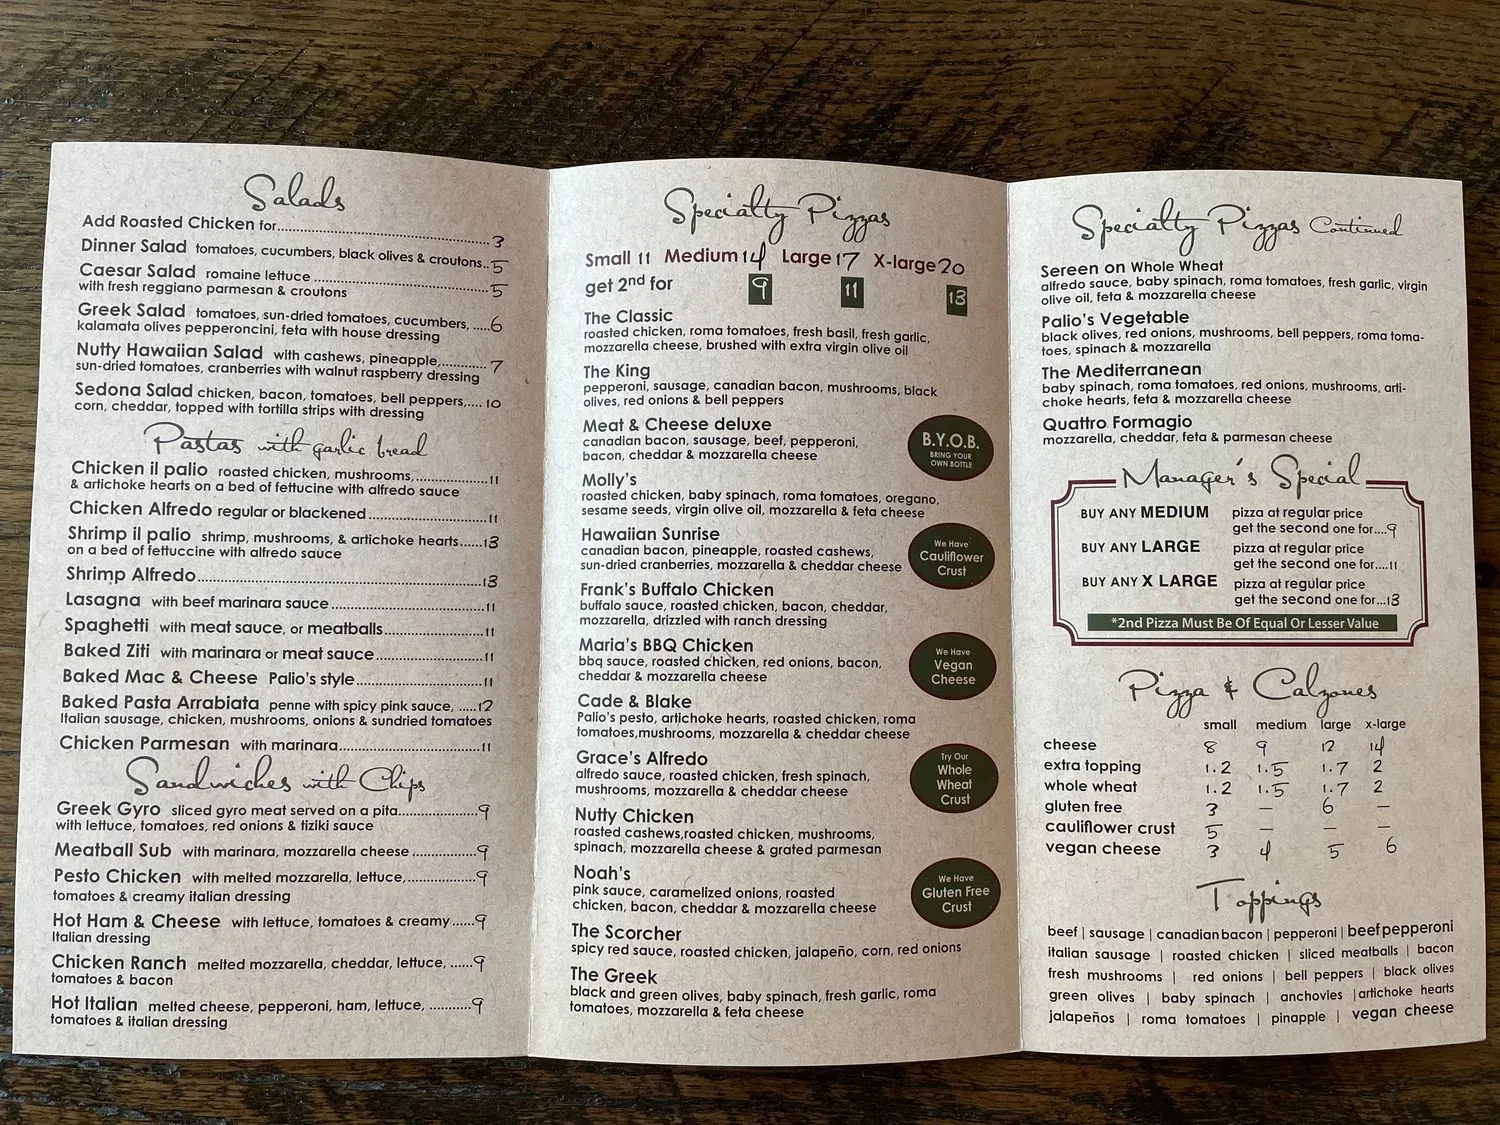 Salads
Add Roasted Chicken for..........3
Dinner Salad tomatoes, cucumbers, black olives & croutons..5
Caesar Salad romaine lettuce ..........5
with fresh reggiano parmesan & croutons
Greek Salad tomatoes, sun-dried tomatoes, cucumbers, .....6
kalamata olives pepperoncini, feta with house dressing
Nutty Hawaiian Salad with cashews, pineapple,..........7
sun-dried tomatoes, cranberries with walnut raspberry dressing
Sedona Salad chicken, bacon, tomatoes, bell peppers,.... 10
corn, cheddar, topped with tortilla strips with dressing
Pastas with garlic bread
Chicken il palio roasted chicken, mushrooms,..........11
& artichoke hearts on a bed of fettucine with alfredo sauce
Chicken Alfredo regular or blackened..........11
Shrimp il palio shrimp, mushrooms, & artichoke hearts......13
on a bed of fettuccine with alfredo sauce
Shrimp Alfredo..........13
Lasagna with beef marinara sauce..........11
Spaghetti with meat sauce, or meatballs..........11
Baked Ziti with marinara or meat sauce..........11
Baked Mac & Cheese Palio's style..........11
Baked Pasta Arrabiata penne with spicy pink sauce, .....12
Italian sausage, chicken, mushrooms, onions & sundried tomatoes
Chicken Parmesan with marinara..........11
Sandwiches with Chips
Greek Gyro sliced gyro meat served on a pita..........9
with lettuce, tomatoes, red onions & tiziki sauce
Meatball Sub with marinara, mozzarella cheese ..........9
Pesto Chicken with melted mozzarella, lettuce,..........9
tomatoes & creamy italian dressing
Hot Ham & Cheese with lettuce, tomatoes & creamy ......9
Italian dressing
Chicken Ranch melted mozzarella, cheddar, lettuce, ......9
tomatoes & bacon
Hot Italian melted cheese, pepperoni, ham, lettuce, ..........9
tomatoes & italian dressing
Specialty Pizzas
Small 11 Medium 14 Large 17 X-large 20
get 2nd for 9 11 13
The Classic
roasted chicken, roma tomatoes, fresh basil, fresh garlic,
mozzarella cheese, brushed with extra virgin olive oil
The King
pepperoni, sausage, canadian bacon, mushrooms, black
olives, red onions & bell peppers
Meat & Cheese deluxe
canadian bacon, sausage, beef, pepperoni,
bacon, cheddar & mozzarella cheese
Molly's
roasted chicken, baby spinach, roma tomatoes, oregano,
sesame seeds, virgin olive oil, mozzarella & feta cheese
Hawaiian Sunrise
canadian bacon, pineapple, roasted cashews,
sun-dried cranberries, mozzarella & cheddar cheese
Frank's Buffalo Chicken
buffalo sauce, roasted chicken, bacon, cheddar,
mozzarella, drizzled with ranch dressing
Maria's BBQ Chicken
bbq sauce, roasted chicken, red onions, bacon,
cheddar & mozzarella cheese
Cade & Blake
Palio's pesto, artichoke hearts, roasted chicken, roma
tomatoes,mushrooms, mozzarella & cheddar cheese
Grace's Alfredo
alfredo sauce, roasted chicken, fresh spinach,
mushrooms, mozzarella & cheddar cheese
Nutty Chicken
roasted cashews,roasted chicken, mushrooms,
spinach, mozzarella cheese & grated parmesan
Noah's
pink sauce, caramelized onions, roasted
chicken, bacon, cheddar & mozzarella cheese
The Scorcher
spicy red sauce, roasted chicken, jalapeño, corn, red onions
The Greek
black and green olives, baby spinach, fresh garlic, roma
tomatoes, mozzarella & feta cheese
B.Y.O.B.
BRING YOUR
OWN BOTTLE
We Have
Cauliflower
Crust
We Have
Vegan
Cheese
Try Our
Whole
Wheat
Crust
We Have
Gluten Free
Crust
Specialty Pizzas Continued
Sereen on Whole Wheat
alfredo sauce, baby spinach, roma tomatoes, fresh garlic, virgin
olive oil, feta & mozzarella cheese
Palio's Vegetable
black olives, red onions, mushrooms, bell peppers, roma toma-
toes, spinach & mozzarella
The Mediterranean
baby spinach, roma tomatoes, red onions, mushrooms, arti-
choke hearts, feta & mozzarella cheese
Quattro Formagio
mozzarella, cheddar, feta & parmesan cheese
Manager's Special
BUY ANY MEDIUM pizza at regular price
get the second one for....9
BUY ANY LARGE pizza at regular price
get the second one for....11
BUY ANY X LARGE pizza at regular price
get the second one for...13
*2nd Pizza Must Be Of Equal Or Lesser Value
Pizza & Calzones
small medium large x-large
cheese 8 9 12 14
extra topping 1.2 1.5 1.7 2
whole wheat 1.2 1.5 1.7 2
gluten free 3 — 6 —
cauliflower crust 5 — — —
vegan cheese 3 4 5 6
Toppings
beef | sausage | canadian bacon | pepperoni | beef pepperoni
italian sausage | roasted chicken | sliced meatballs | bacon
fresh mushrooms | red onions | bell peppers | black olives
green olives | baby spinach | anchovies | artichoke hearts
jalapeños | roma tomatoes | pinapple | vegan cheese